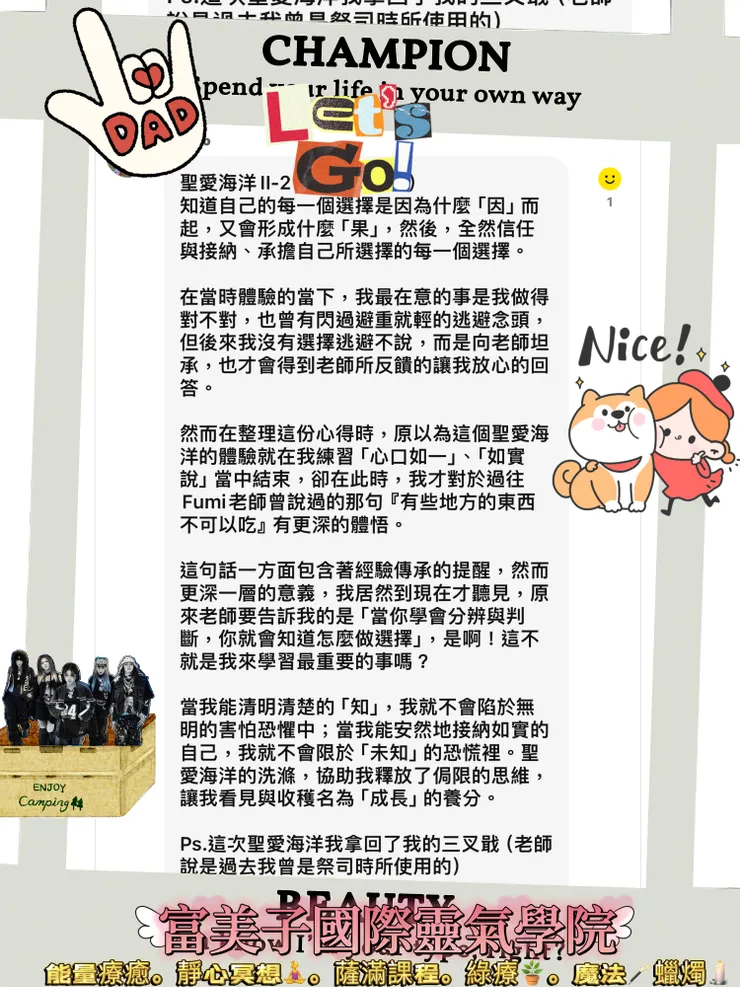 Ps.這次聖愛海洋我拿回了我的三叉戢（老師
說是過去我曾是祭司時所使用的）
CHAMPION
Spend your life in your own way
DAD
Let's
Go!
聖愛海洋II-2
知道自己的每一個選擇是因為什麼「因」而
起，又會形成什麼「果」，然後，全然信任
與接納、承擔自己所選擇的每一個選擇。
1
在當時體驗的當下，我最在意的事是我做得
對不對，也曾有閃過避重就輕的逃避念頭，
但後來我沒有選擇逃避不說，而是向老師坦
承，也才會得到老師所反饋的讓我放心的回
答。
Nice!
然而在整理這份心得時，原以為這個聖愛海
洋的體驗就在我練習「心口如一」、「如實
說」當中結束，卻在此時，我才對於過往
Fumi老師曾說過的那句『有些地方的東西
不可以吃』有更深的體悟。
這句話一方面包含著經驗傳承的提醒，然而
更深一層的意義，我居然到現在才聽見，原
來老師要告訴我的是「當你學會分辨與判
斷，你就會知道怎麼做選擇」，是啊！這不
就是我來學習最重要的事嗎？
當我能清明清楚的「知」，我就不會陷於無
明的害怕恐懼中；當我能安然地接納如實的
自己，我就不會限於「未知」的恐慌裡。聖
愛海洋的洗滌，協助我釋放了侷限的思維，
讓我看見與收穫名為「成長」的養分。
24
ENJOY
Camping
Ps.這次聖愛海洋我拿回了我的三叉戢（老師
說是過去我曾是祭司時所使用的）
BEAUTY
富美子國際靈氣學院
能量療癒。靜心冥想🧘。薩滿課程。綠療🪴。魔法🪄蠟燭🕯️